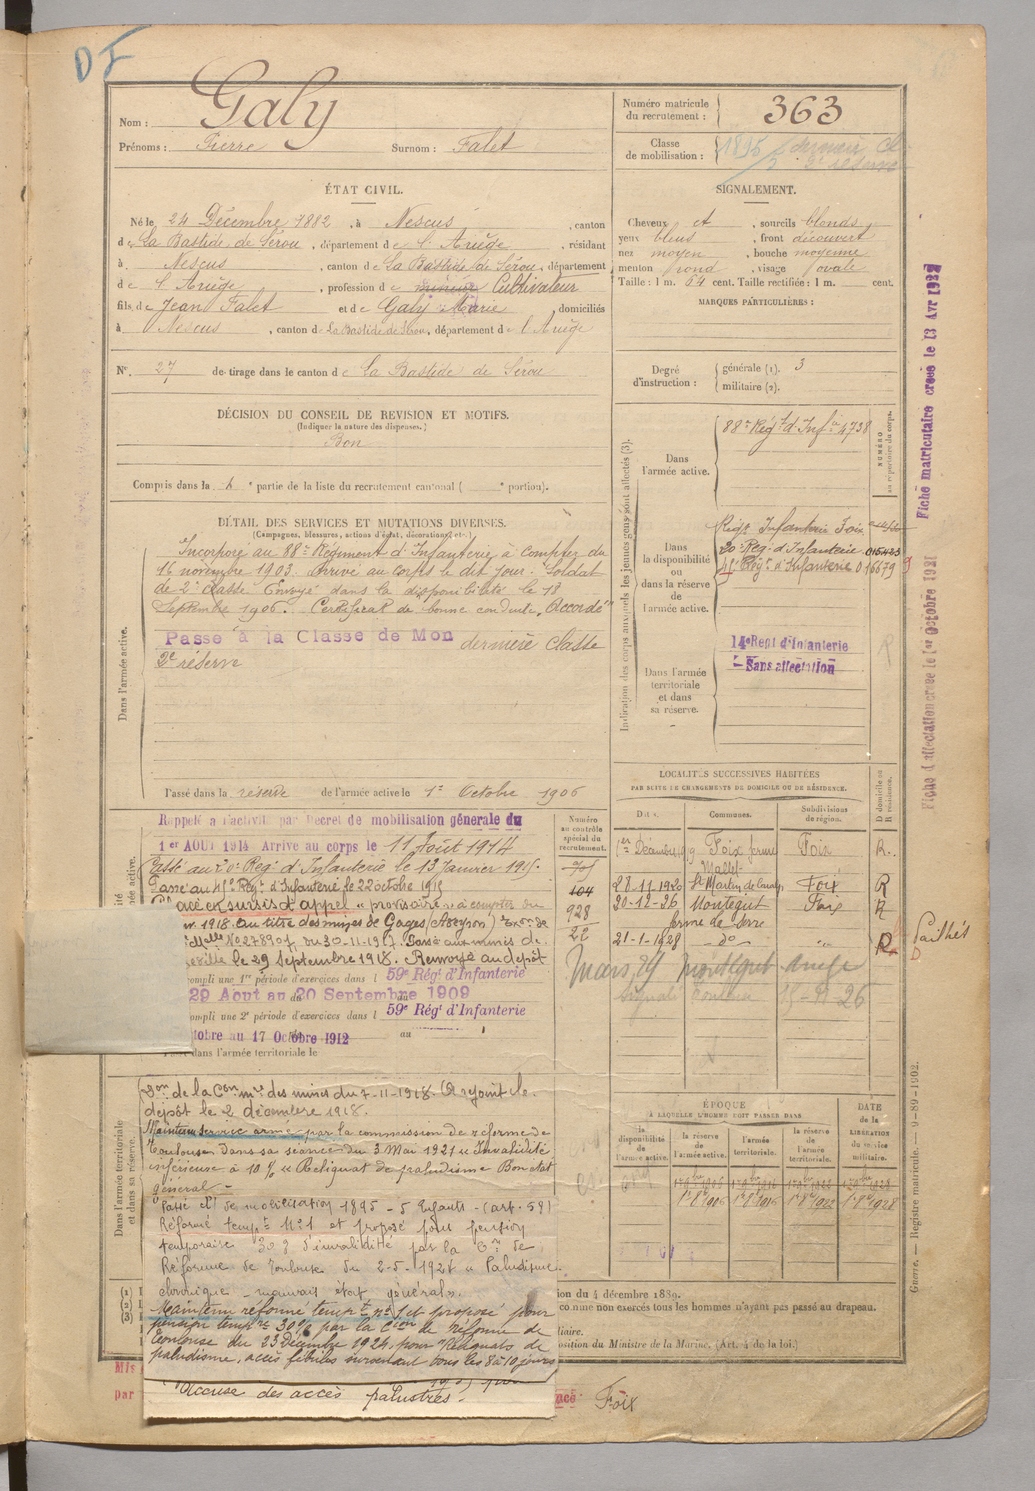 DF
Nom : Galy
Prénoms : Pierre Surnom : Falet
Numéro matricule du recrutement : 363
Classe de mobilisation : 1895 dernière Cl
2e réserve
ÉTAT CIVIL.
Né le 24 Décembre 1882, à Nescus, canton
de La Bastide de Sérou, département de l'Ariège, résidant
à Nescus, canton de La Bastide de Sérou, département
de l'Ariège, profession de mineur Cultivateur
fils de Jean Falet et de Galy Marie domiciliés
à Nescus, canton de La Bastide de Sérou, département de l'Ariège
N° 27 de tirage dans le canton de La Bastide de Sérou
SIGNALEMENT.
Cheveux et, sourcils blonds
yeux bleus, front découvert
nez moyen, bouche moyenne
menton rond, visage ovale
Taille : 1 m. 64 cent. Taille rectifiée : 1 m. cent.
MARQUES PARTICULIÈRES :
Degré d'instruction : générale (1). 3
militaire (2).
DÉCISION DU CONSEIL DE REVISION ET MOTIFS.
(Indiquer la nature des dispenses.)
Bon
Compris dans la 1e partie de la liste du recrutement cantonal ( e portion).
DÉTAIL DES SERVICES ET MUTATIONS DIVERSES.
(Campagnes, blessures, actions d'éclat, décorations, etc.)
Dans l'armée active.
Incorporé au 88e Régiment d'Infanterie à compter du
16 novembre 1903. Arrivé au corps le dit jour. Soldat
de 2e classe. Envoyé dans la disponibilité le 18
Septembre 1906. Certificat de bonne conduite "Accordé"
Passé à la Classe de Mon dernière classe
2e réserve
Passé dans la réserve de l'armée active le 1er Octobre 1906
Indication des corps auxquels les jeunes gens sont affectés (3).
Dans l'armée active.
88e Régt d'Infie 4738
NUMÉRO au répertoire du corps.
Dans la disponibilité ou dans la réserve de l'armée active.
Régt Infanterie Foix
20e Régt d'Infanterie 015423
45e Régt d'Infanterie 016679
Dans l'armée territoriale et dans sa réserve.
14e Regt d'Infanterie
Sans affectation
R
Fiche matriculaire creée le 13 Avr 1932
Fiche d'affectation creée le 1er Octobre 1921
LOCALITÉS SUCCESSIVES HABITÉES
PAR SUITE DE CHANGEMENTS DE DOMICILE OU DE RÉSIDENCE.
Dates. Communes. Subdivisions de région. D domicile ou R résidence.
Foix ferme Foix R.
28-11-1920 St Martin de Caralp Foix R
20-12-26 Montégut Foix R
ferme de Serre
21-1-1928 - do - R Pailhès
Mars 29 Montégut Ariège
Numéro au contrôle spécial du recrutement.
705
104
928
22
Rappelé à l'activité par Décret de mobilisation générale du
1er AOUT 1914 Arrivé au corps le 11 Août 1914
Passé au 20e Régt d'Infanterie le 13 Janvier 1915.
Passé au 45e Régt d'Infanterie le 22 octobre 1915
Placé en sursis d'appel "provisoire" à compter du
1918. au titre des mines de Gages (Aveyron)
No 278907 du 30-11-1917. Passé aux mines de
le 29 Septembre 1918. Renvoyé au dépôt
accompli une 1re période d'exercices dans l 59e Régt d'Infanterie
29 Aout au 20 Septembre 1909
accompli une 2e période d'exercices dans l 59e Régt d'Infanterie
octobre au 17 Octobre 1912 au
Passé dans l'armée territoriale le
Dans l'armée territoriale et dans sa réserve.
Don de la Con mre des mines du 7-11-1918. A rejoint le
dépôt le 2 décembre 1918.
Maintenu service armé par la commission de réforme de
Toulouse dans sa séance du 3 Mai 1921 "Invalidité
inférieure à 10 % "Reliquat de paludisme Bon état
général -
Passé Cl de mobilisation 1895 - 5 Enfants - (art. 59)
Réformé tempre n° 1 et proposé pour pension
temporaire 30 % d'invalidité par la Con de
Réforme de Toulouse du 2-5-1924 "Paludisme
chronique - mauvais état général".
Maintenu réformé tempre n° 1 et proposé pour
pension tempre 30% par la Con de Réforme de
Toulouse du 23 Décembre 1924 pour "Reliquats de
paludisme, accès fébriles survenant tous les 8 à 10 jours
Accuse des accès palustres".
ÉPOQUE
À LAQUELLE L'HOMME DOIT PASSER DANS
la disponibilité de l'armée active. la réserve de l'armée active. l'armée territoriale. la réserve de l'armée territoriale.
DATE de la LIBÉRATION du service militaire.
1er 8bre 1906 1er 8bre 1916 1er 8bre 1922 1er 8bre 1928
(1)
(2)
(3)
ion du 4 décembre 1889.
comme non exercés tous les hommes n'ayant pas passé au drapeau.
liaire.
position du Ministre de la Marine. (Art. 4 de la loi.)
Mis
par
Foix
Guerre. — Registre matricule. — 9-89-1902.